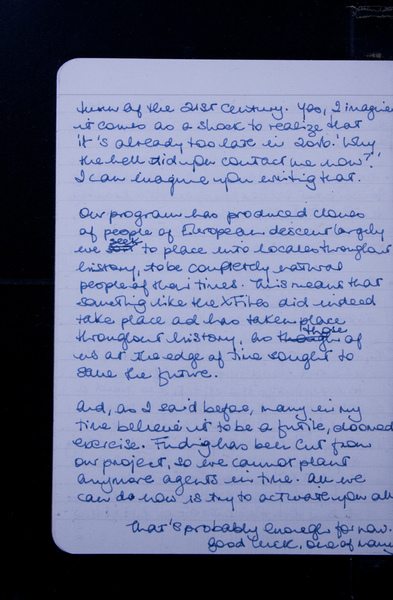 turn of the 21st century. Yes, I imagine
it comes as a shock to realize that
it's already too late in 2016. 'Why
the hell did you contact me now?'
I can imagine you writing that.
Our program has produced clones
of people of European descent largely
we seek to place into locales throughout
history, to be completely natural
people of their times. This means that
something like the X Files did indeed
take place and has taken place
throughout history, as those of
us at the edge of time sought to
save the future.
And, as I said before, many in my
time believe it to be a futile, doomed
exercise. Funding has been cut from
our project, so we cannot plant
anymore agents in time. All we
can do now is try to activate you all
That's probably enough for now.
Good luck, one of many